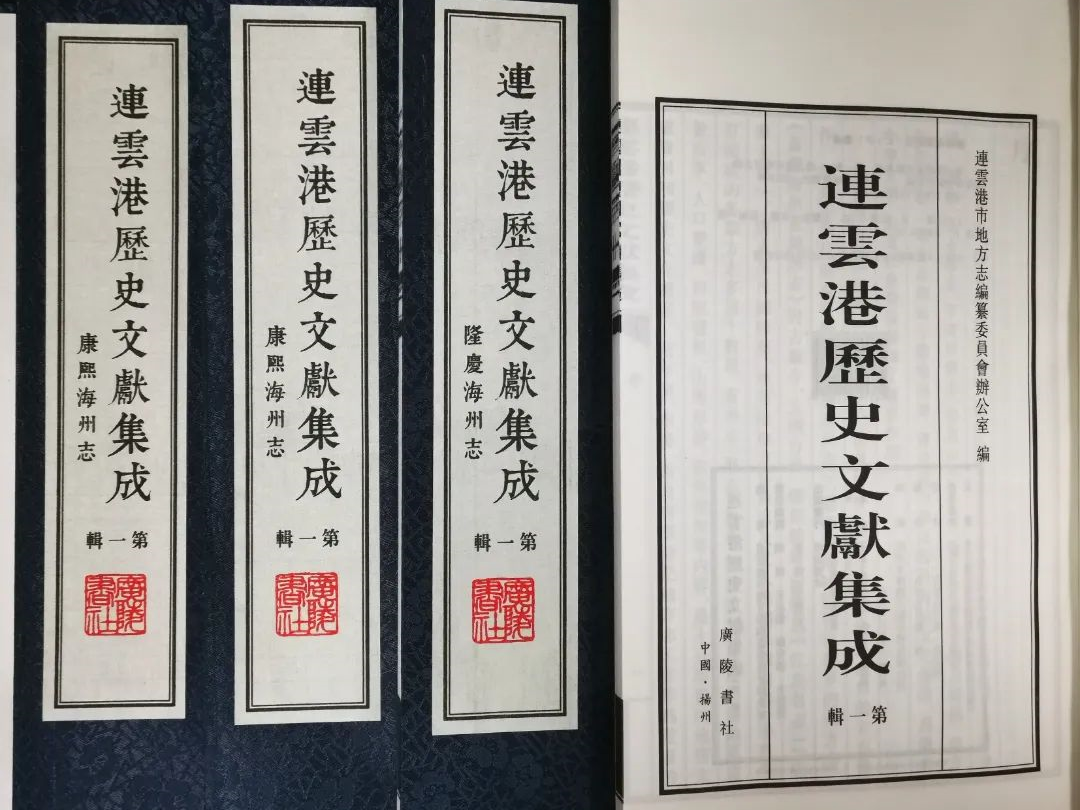 連雲港歷史文獻集成
康熙海州志
第一輯
廣陵書社
連雲港歷史文獻集成
康熙海州志
第一輯
廣陵書社
連雲港歷史文獻集成
隆慶海州志
第一輯
廣陵書社
連雲港市地方志編纂委員會辦公室 編
連雲港歷史文獻集成
第一輯
廣陵書社
中國·揚州